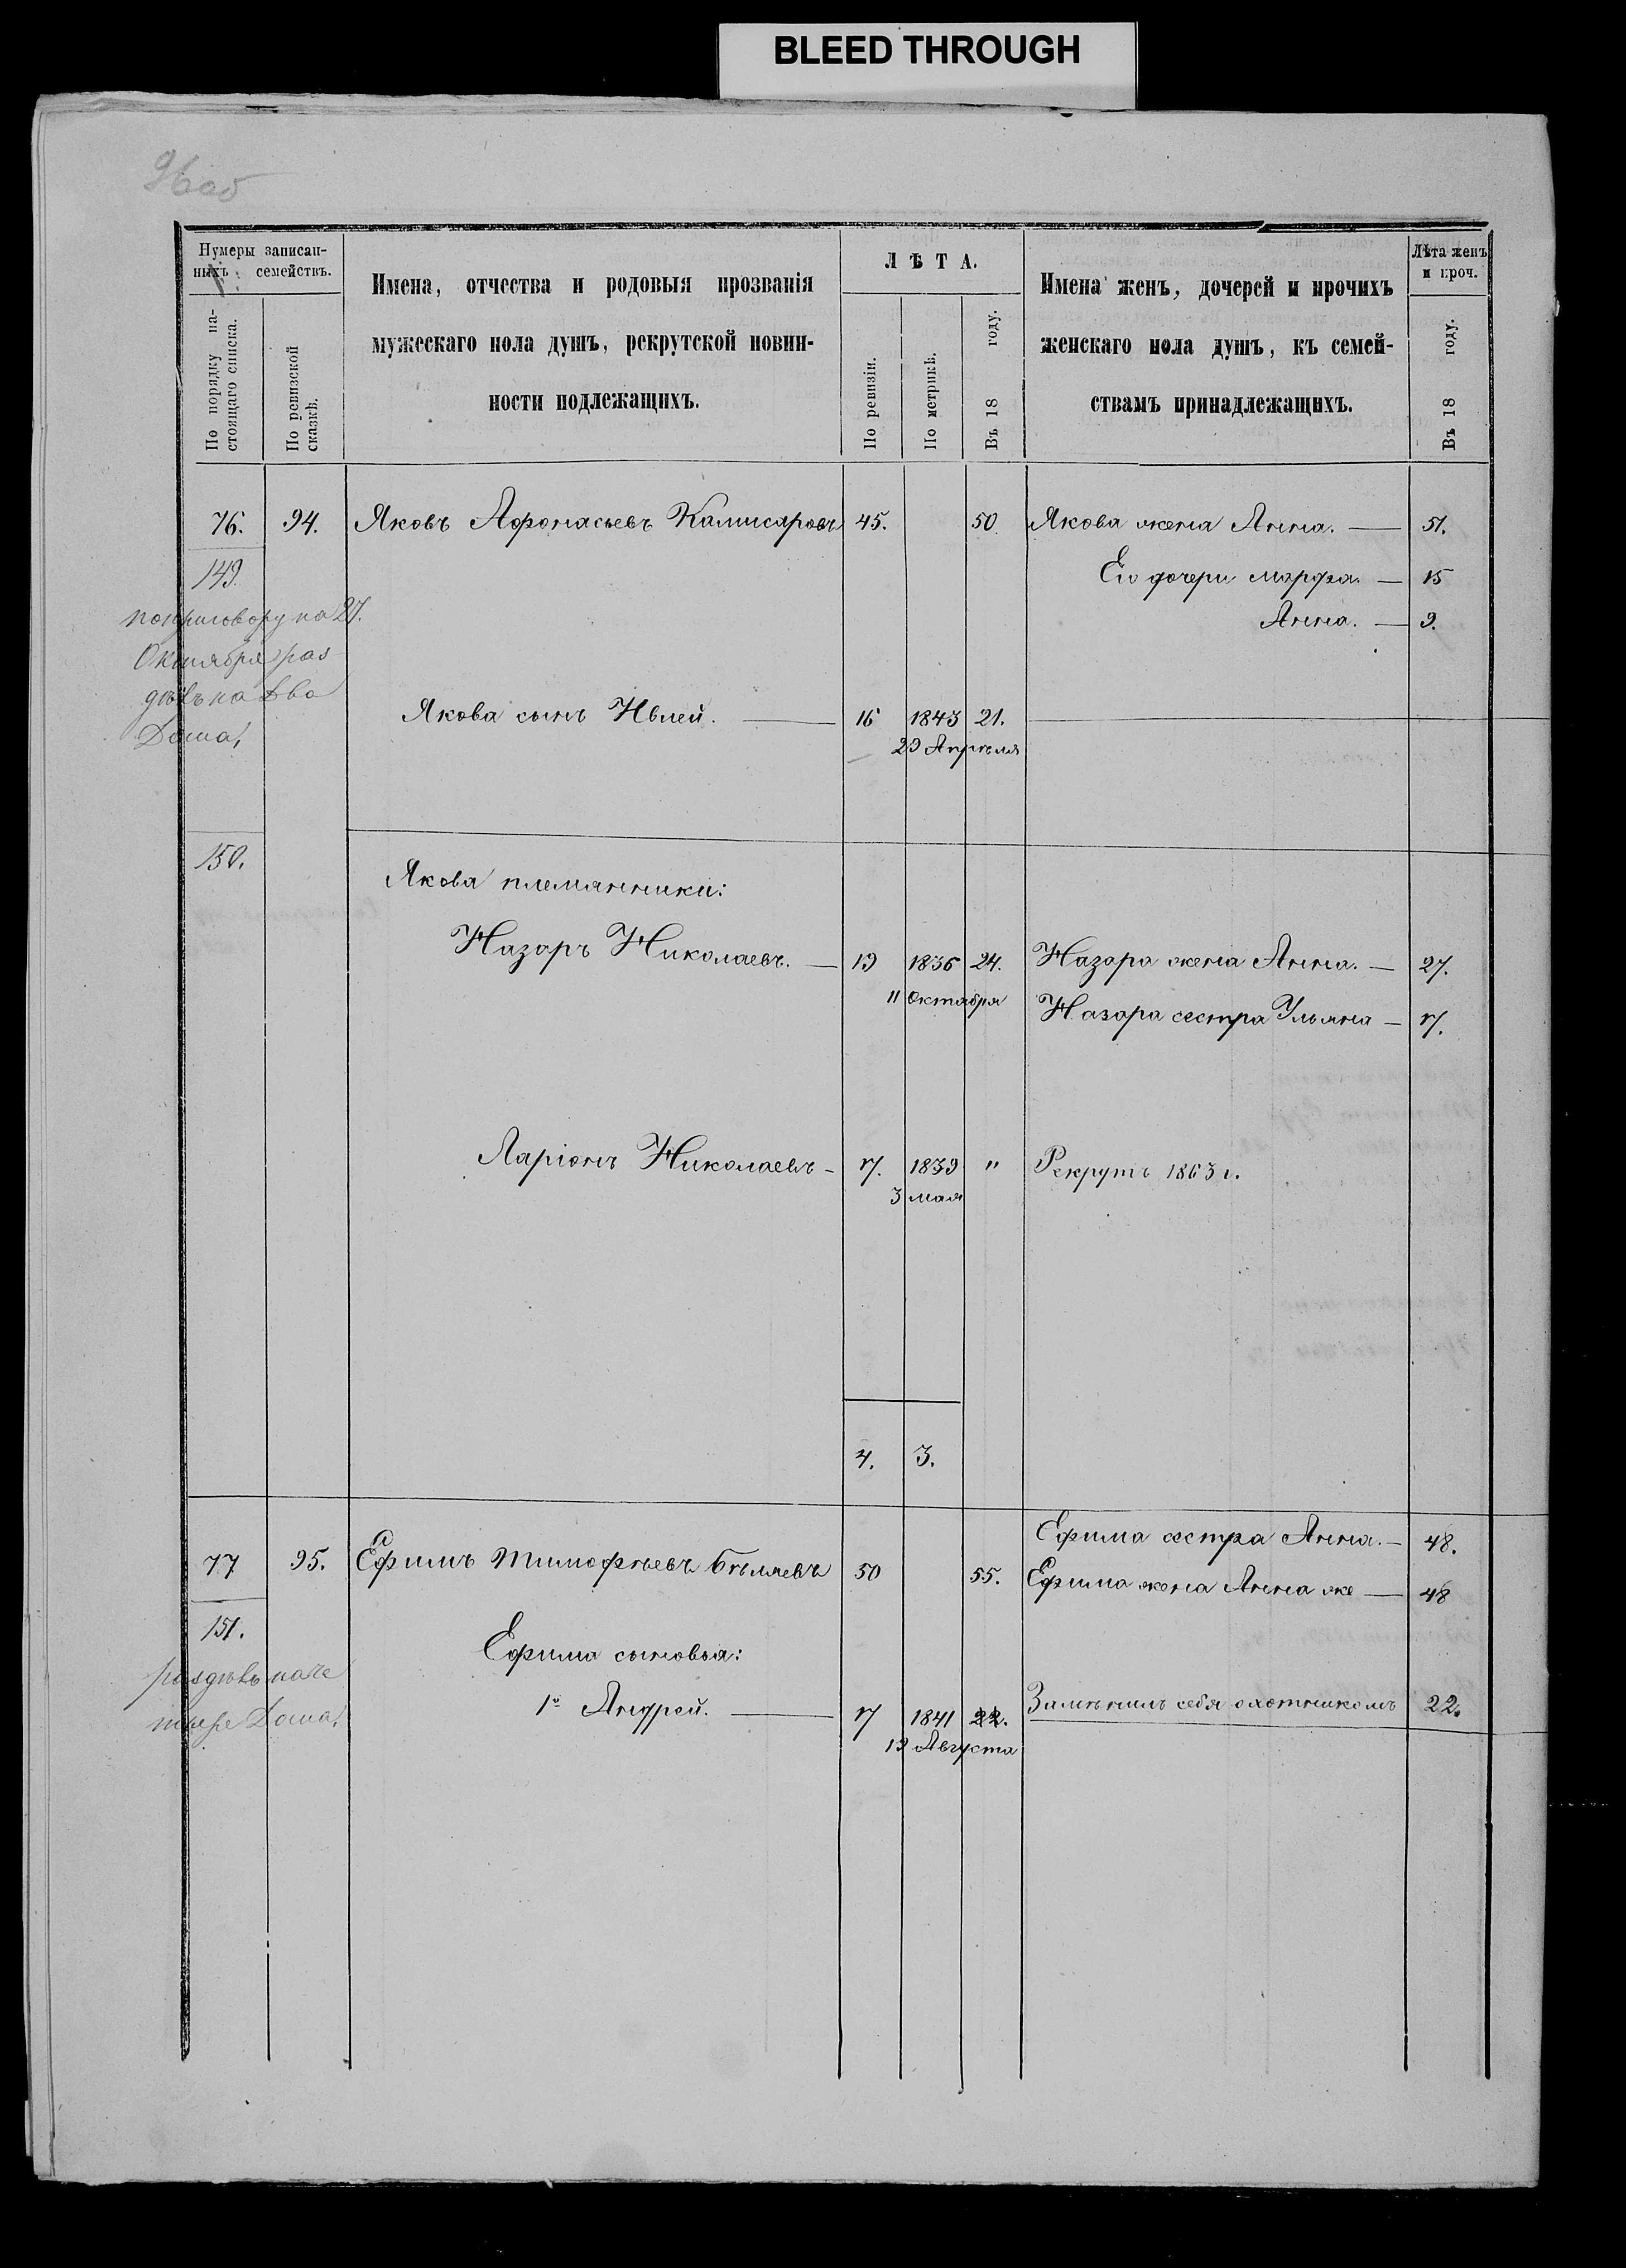 BLEED THROUGH
96об
Нумеры записан-
ныхъ семействъ.
По порядку на-
стоящаго списка.
По ревизской
сказкѣ.
Имена, отчества и родовыя прозванія
мужескаго пола душъ, рекрутской повин-
ности подлежащихъ.
ЛѢТА.
По ревизіи.
По метрикѣ.
Въ 18 году.
Имена женъ, дочерей и прочихъ
женскаго пола душъ, къ семей-
ствамъ принадлежащихъ.
Лѣта женъ
и проч.
Въ 18 году.
76. 94. Яковъ Афонасьевъ Камисаровъ 45. 50 Якова жена Анна. — 51.
149. Его дочери Марфа. — 15
по приговору на 27. Анна. — 9.
Октября раз
дѣлъ на два
Дома,
Якова сынъ Ивлей. — 16 1843 21.
29 Апрѣля
150.
Якова племянники:
Назаръ Николаевъ. — 19 1836 24. Назара жена Анна. — 27.
11 Октября Назара сестра Ульяна — 17.
Ларіонъ Николаевъ — 17. 1839 " Рекрутъ 1863 г.
3 мая
4. 3.
Ефима сестра Анна. — 48.
77 95. Ефимъ Тимофѣевъ Бѣляевъ 50 55. Ефима жена Анна же — 48
151.
Ефима сыновья:
раздѣлъ на че
тыре Дома,
1й Андрей. — 17 1841 22. Замѣнилъ себя охотникомъ 22.
19 Августа